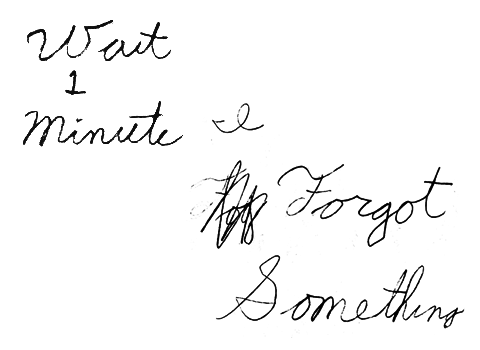 Wait
1
Minute I
Forgot
Something